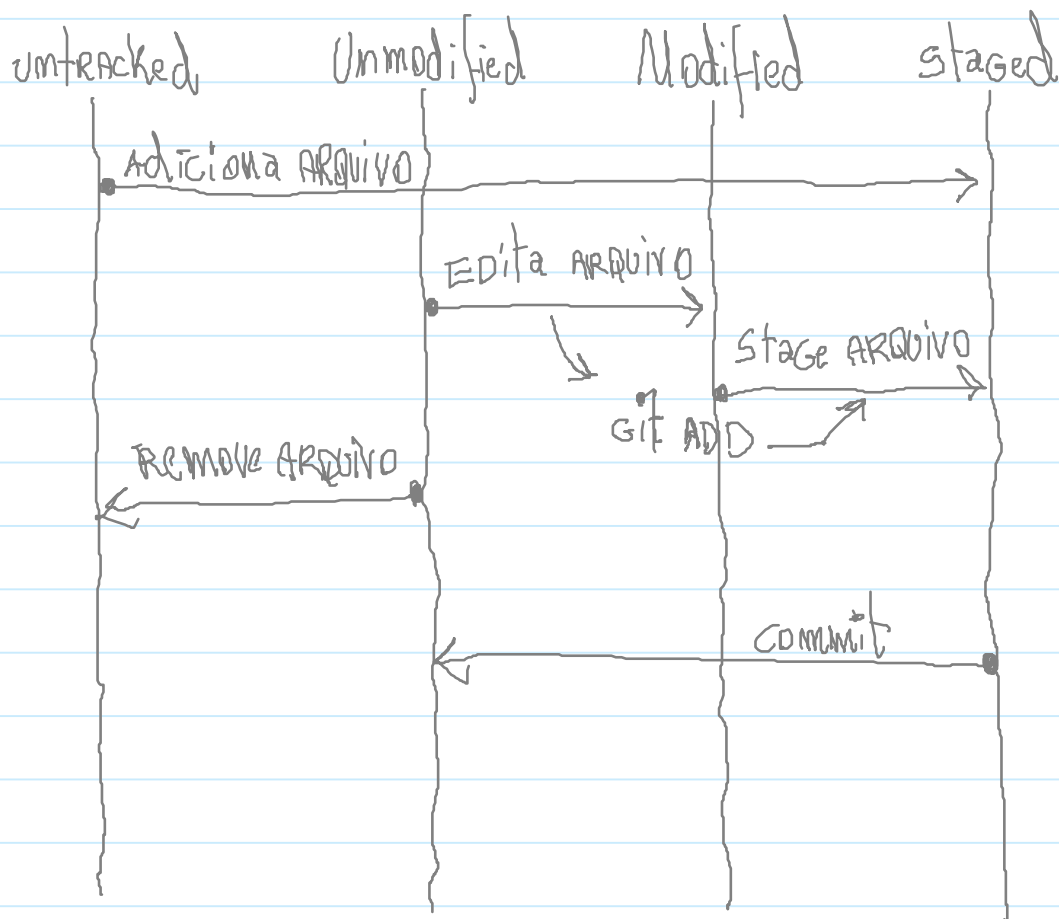 untracked
Unmodified
Modified
staged
Adiciona ARQUIVO
EDita ARQUIVO
Stage ARQUIVO
Git ADD
Remove ARQUIVO
commit